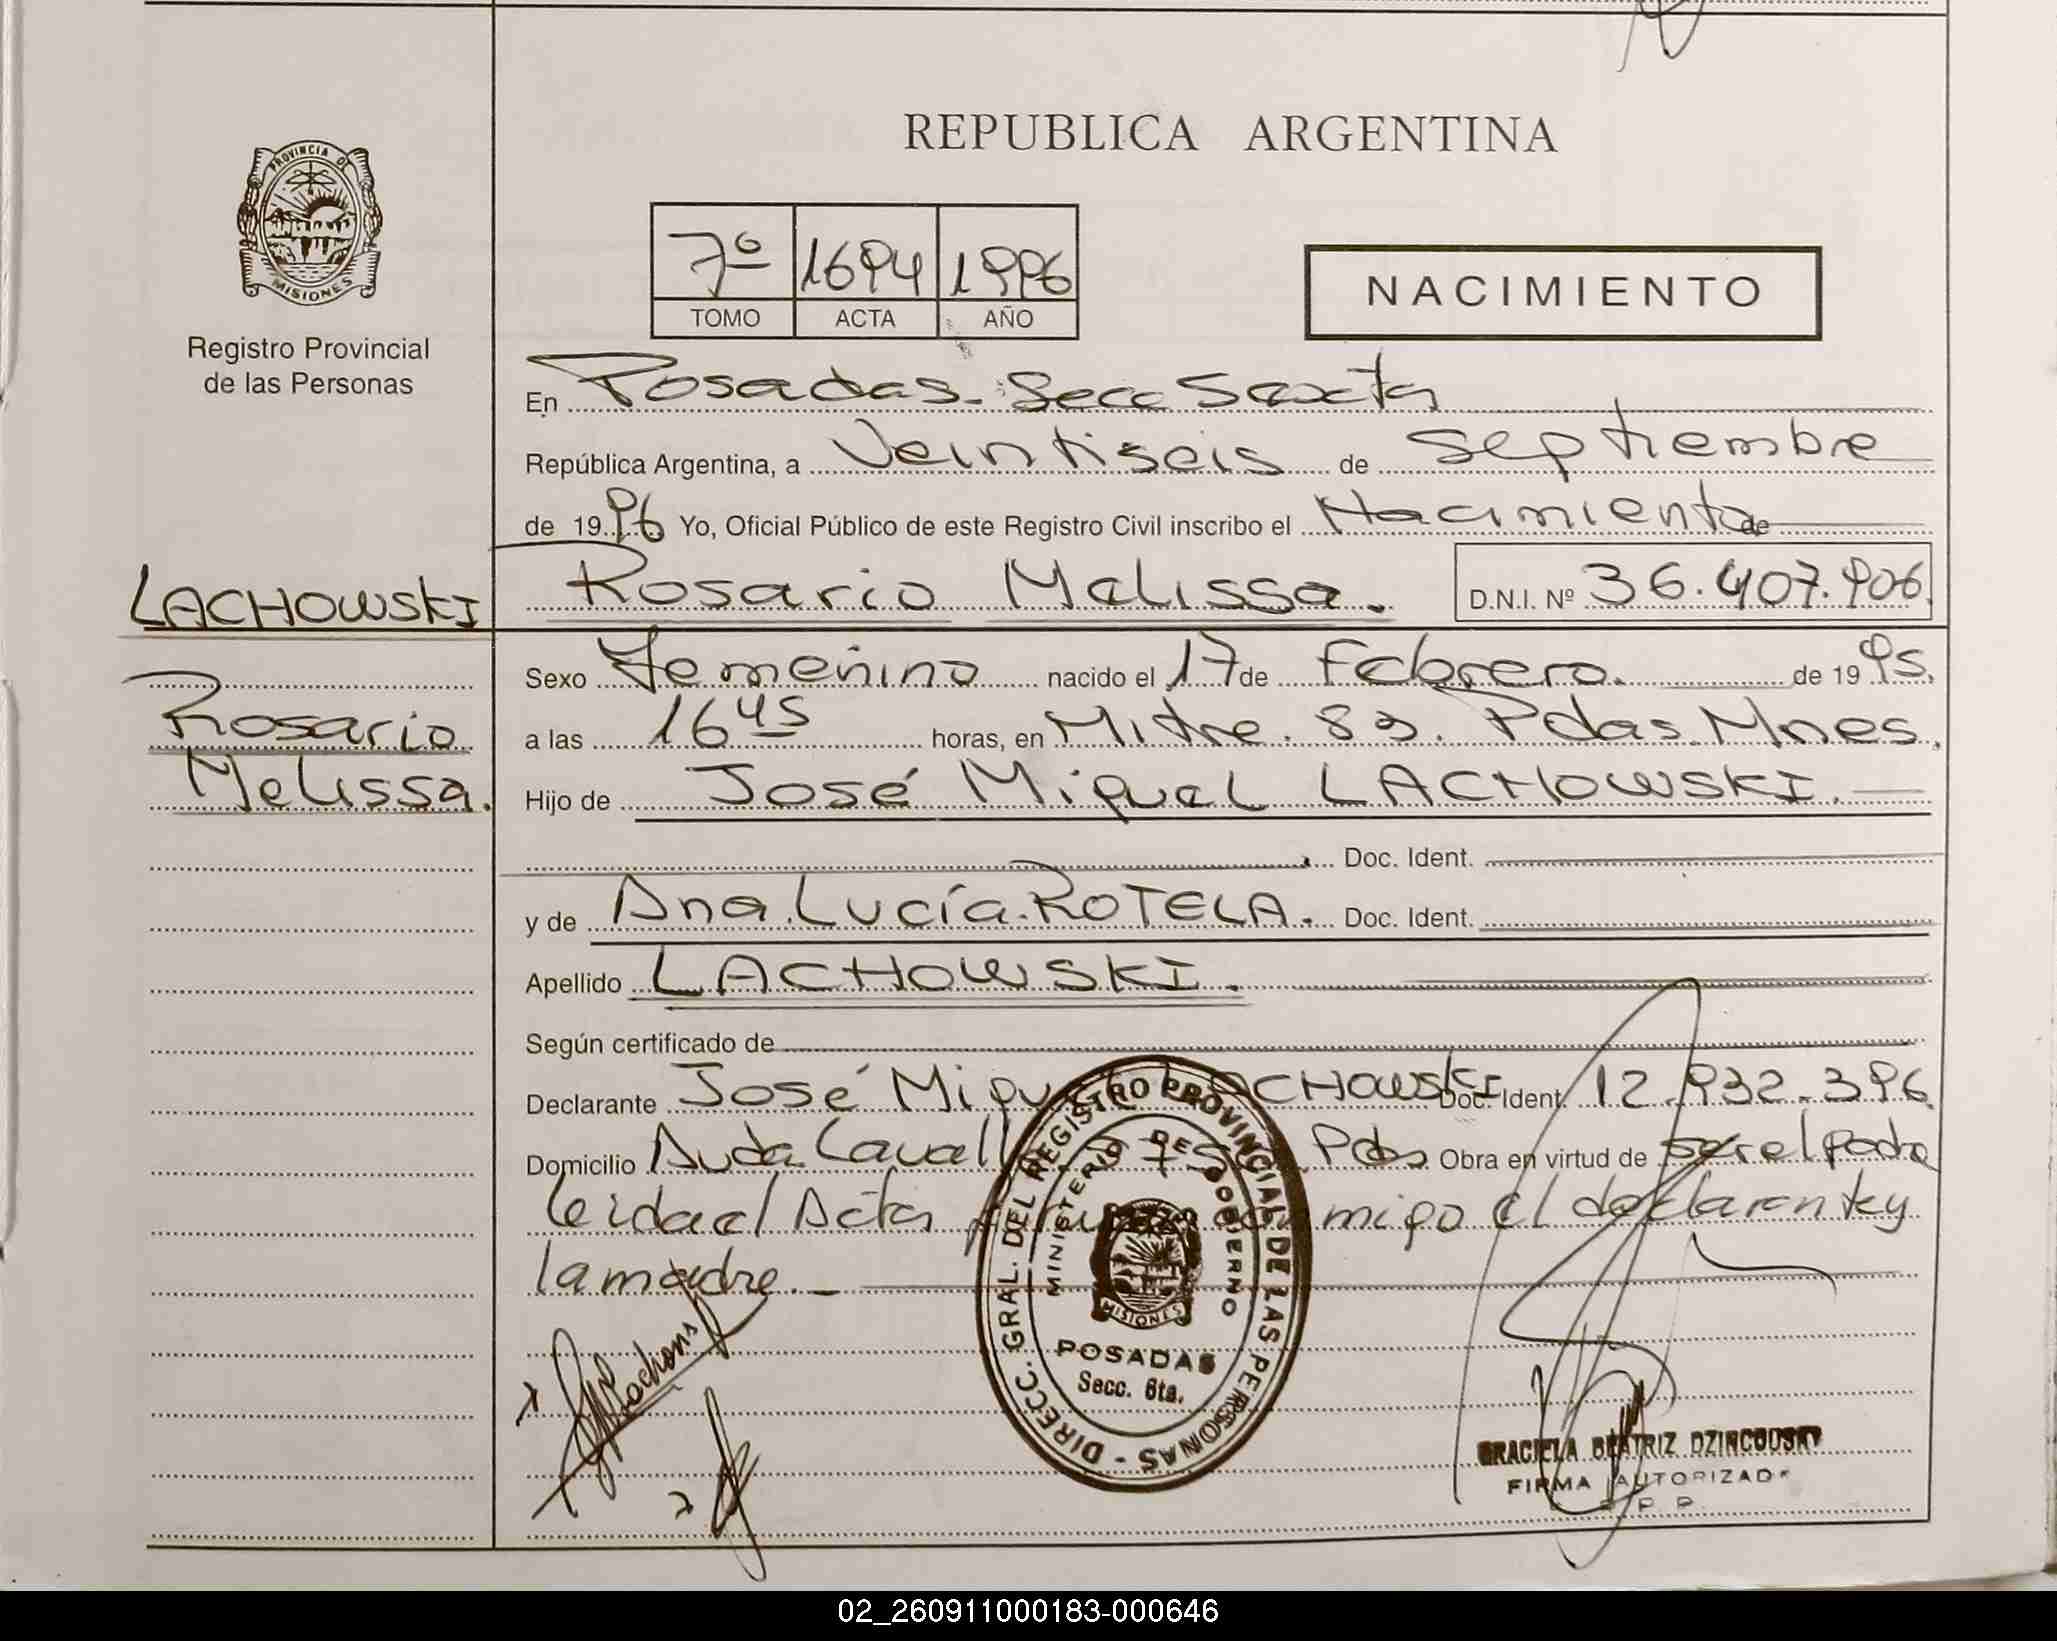 REPUBLICA ARGENTINA
PROVINCIA DE
MISIONES
Registro Provincial
de las Personas
7º 1694 1996
TOMO ACTA AÑO
NACIMIENTO
En Posadas- Secc Sexta
República Argentina, a Veintiseis de septiembre
de 1996 Yo, Oficial Público de este Registro Civil inscribo el Nacimiento de
LACHOWSKI
Rosario Melissa. D.N.I. Nº 36.407.906
Rosario
Melissa.
Sexo Femenino nacido el 17 de Febrero. de 1995.
a las 16 45 horas, en Mitre. 83. Pdas. Mnes.
Hijo de José Miguel LACHOWSKI.
Doc. Ident.
y de Ana Lucía ROTELA. Doc. Ident.
Apellido LACHOWSKI.
Según certificado de
Declarante José Miguel LACHOWSKI Doc. Ident. 12.932.396
Domicilio Avda Pds Obra en virtud de ser el padre
leida el Acta migo el declarante y
la madre.-
DIRECC. GRAL. DEL REGISTRO PROVINCIAL DE LAS PERSONAS -
MINISTERIO DE GOBIERNO
MISIONES
POSADAS
Secc. 6ta.
GRACIELA BEATRIZ
FIRMA AUTORIZADA
02_260911000183-000646